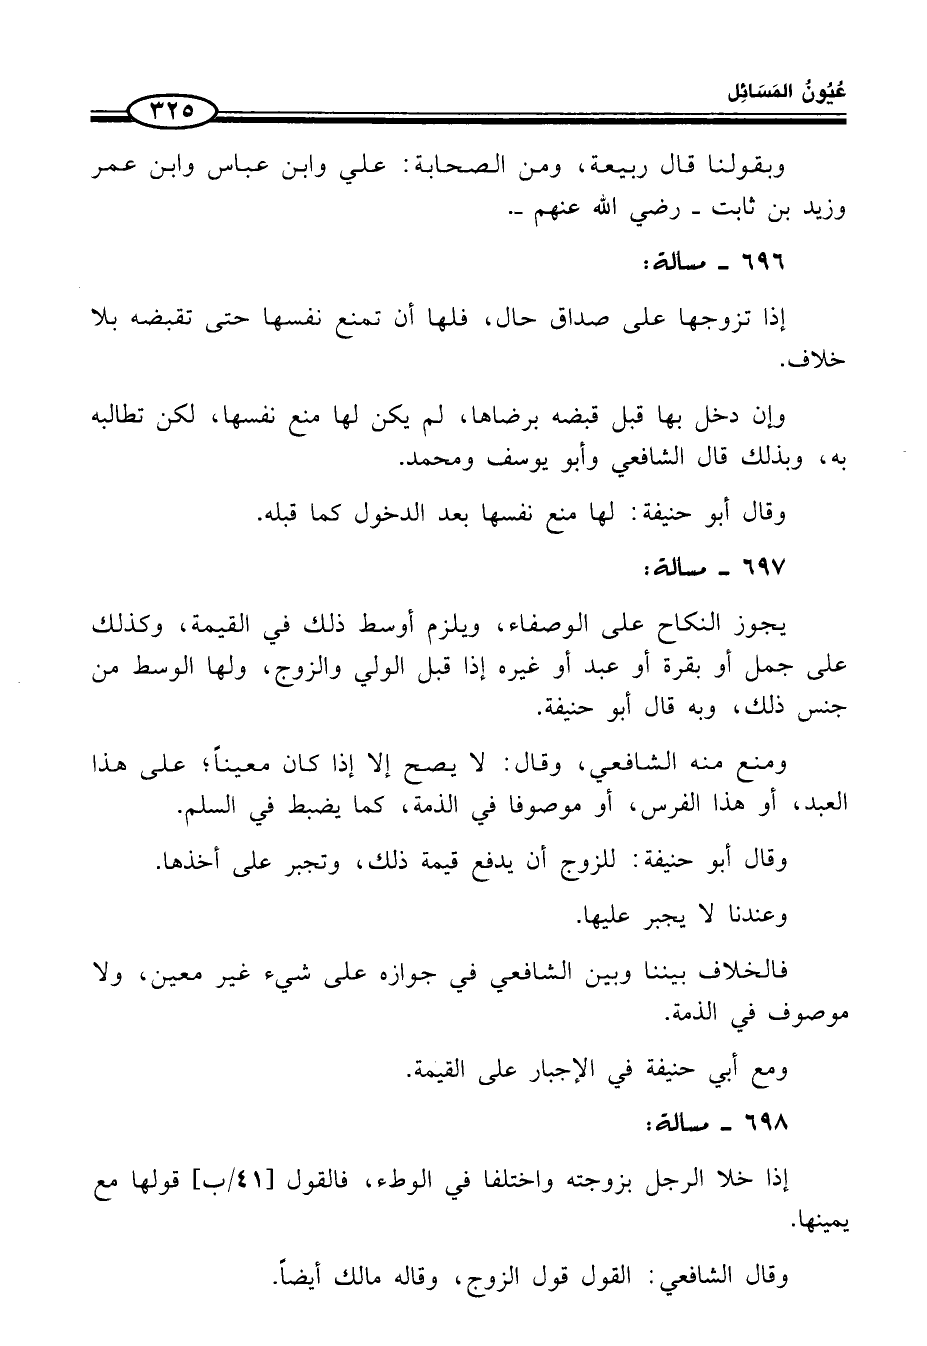 عُيُونُ المَسَائِل
٣٢٥
وبقولنا قال ربيعة، ومن الصحابة: علي وابن عباس وابن عمر
وزيد بن ثابت ـ رضي الله عنهم ـ.
٦٩٦ ـ مسالة:
إذا تزوجها على صداق حال، فلها أن تمنع نفسها حتى تقبضه بلا
خلاف.
وإن دخل بها قبل قبضه برضاها، لم يكن لها منع نفسها، لكن تطالبه
به، وبذلك قال الشافعي وأبو يوسف ومحمد.
وقال أبو حنيفة: لها منع نفسها بعد الدخول كما قبله.
٦٩٧ ـ مسالة:
يجوز النكاح على الوصفاء، ويلزم أوسط ذلك في القيمة، وكذلك
على جمل أو بقرة أو عبد أو غيره إذا قبل الولي والزوج، ولها الوسط من
جنس ذلك، وبه قال أبو حنيفة.
ومنع منه الشافعي، وقال: لا يصح إلا إذا كان معيناً؛ على هذا
العبد، أو هذا الفرس، أو موصوفا في الذمة، كما يضبط في السلم.
وقال أبو حنيفة: للزوج أن يدفع قيمة ذلك، وتجبر على أخذها.
وعندنا لا يجبر عليها.
فالخلاف بيننا وبين الشافعي في جوازه على شيء غير معين، ولا
موصوف في الذمة.
ومع أبي حنيفة في الإجبار على القيمة.
٦٩٨ ـ مسالة:
إذا خلا الرجل بزوجته واختلفا في الوطء، فالقول [٤١/ب] قولها مع
يمينها.
وقال الشافعي: القول قول الزوج، وقاله مالك أيضاً.